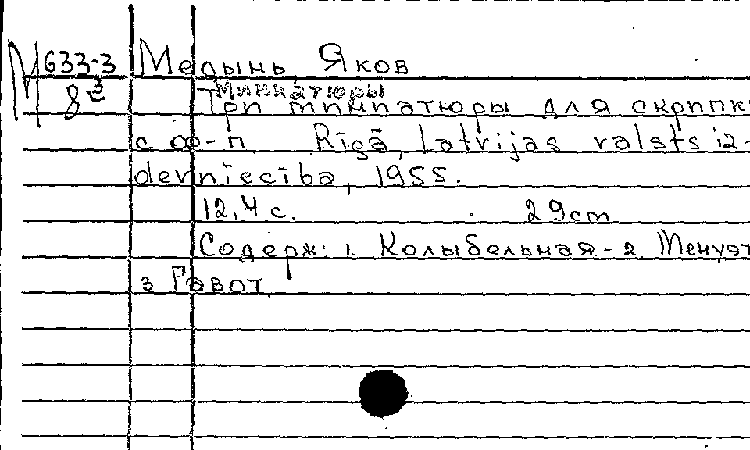 М 633-3 Медынь, Яков
8
Миниатюры
Три миниатюры для скрипк
с ф-п. Rīgā, Latvijas valsts iz-
devniecība, 1955.
12,4 с. 29cm
Содерж: 1. Колыбельная - 2. Менуэт
3 Гавот.